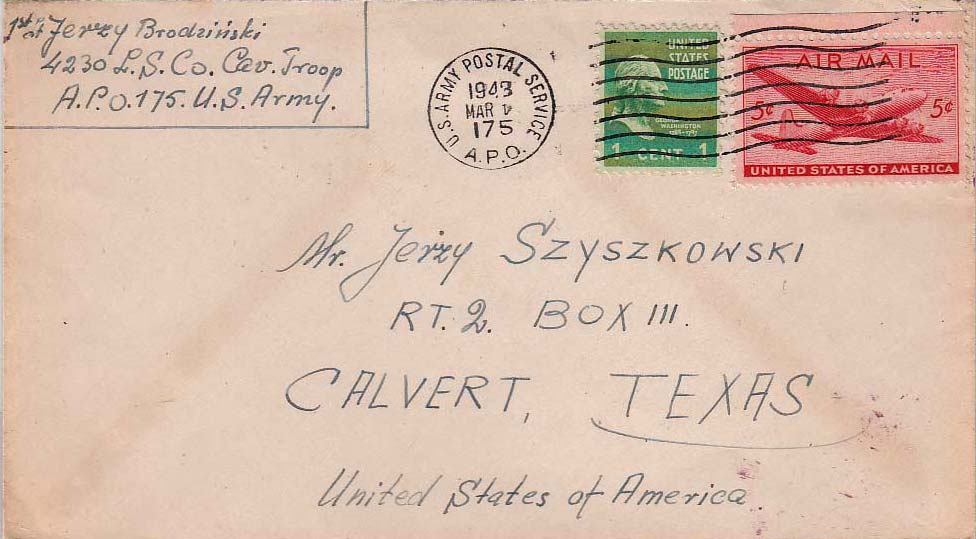 1st Lt Jerzy Brodziński
4230 L.S.Co. Cav. Troop
A.P.O. 175. U.S. Army.
U.S. ARMY POSTAL SERVICE
MAR
175
A.P.O.
UNITED
STATES
POSTAGE
GEORGE
WASHINGTON
1789-1797
1 CENT 1
AIR MAIL
5¢ 5¢
UNITED STATES OF AMERICA
Mr. Jerzy SZYSZKOWSKI
RT. 2. BOX 111.
CALVERT, TEXAS
United States of America